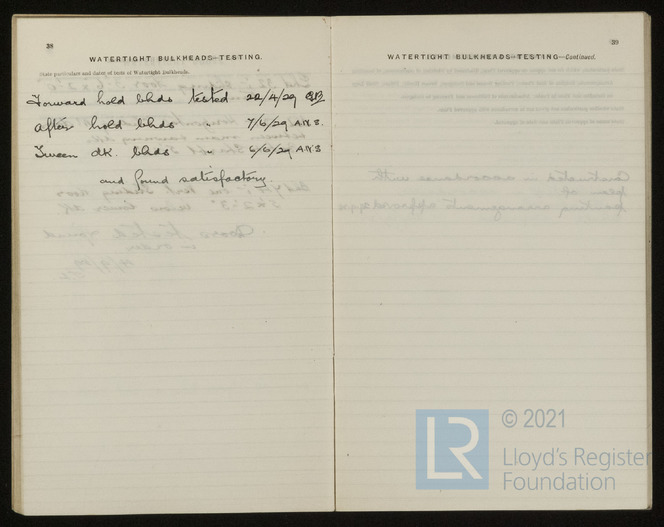 38
WATERTIGHT BULKHEADS—TESTING.
State particulars and dates of tests of Watertight Bulkheads.
Forward hold blhds tested 22/4/29
After hold blhds " 7/6/29 A.N.S.
Tween dk. blhds " 6/6/29 A.N.S
and found satisfactory.
39
WATERTIGHT BULKHEADS—TESTING—Continued.
LR
© 2021
Lloyd's Register
Foundation